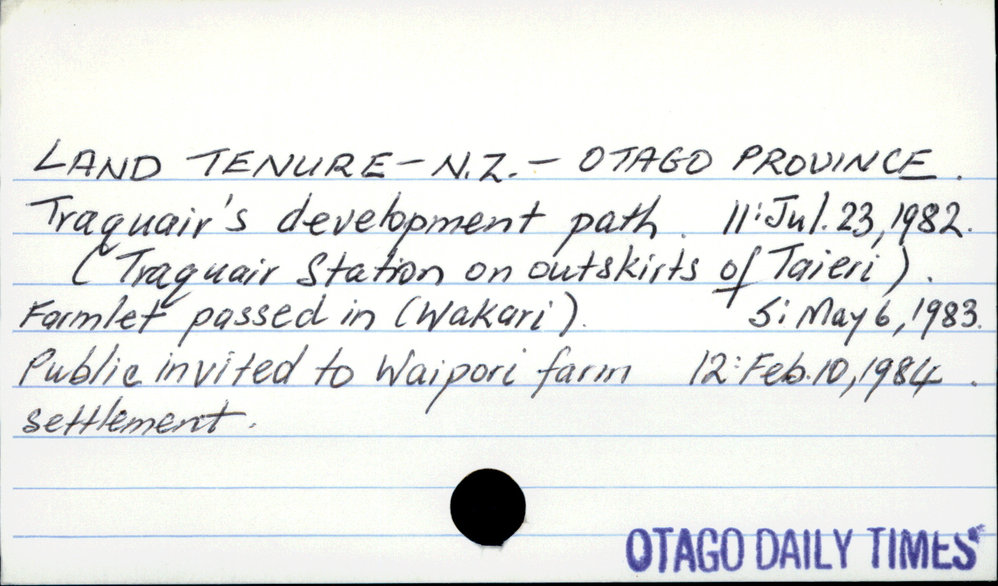 LAND TENURE - N.Z. - OTAGO PROVINCE.
Traquair's development path. 11: Jul. 23, 1982.
(Traquair Station on outskirts of Taieri).
Farmlet passed in (Wakari). 5: May 6, 1983.
Public invited to Waipori farm 12: Feb. 10, 1984.
settlement.
OTAGO DAILY TIMES